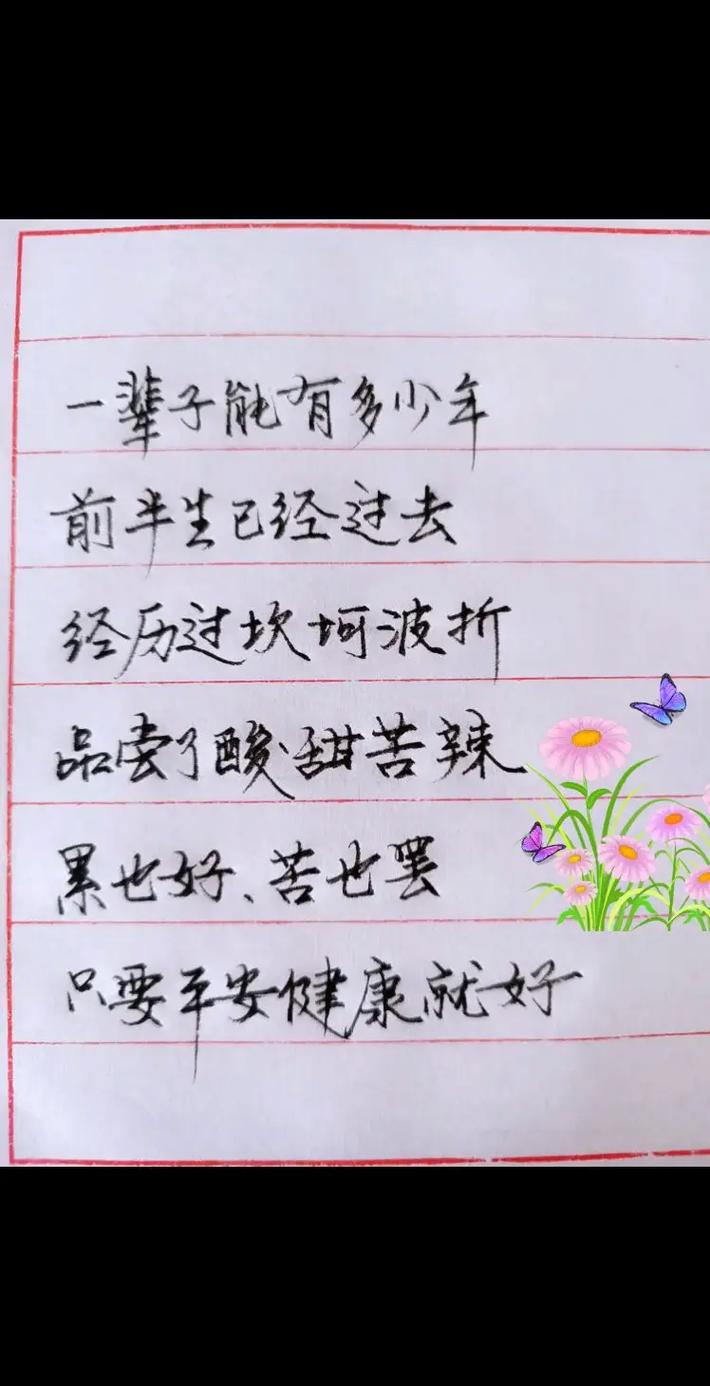 一辈子能有多少年
前半生已经过去
经历过坎坷波折
品尝了酸甜苦辣
累也好、苦也罢
只要平安健康就好